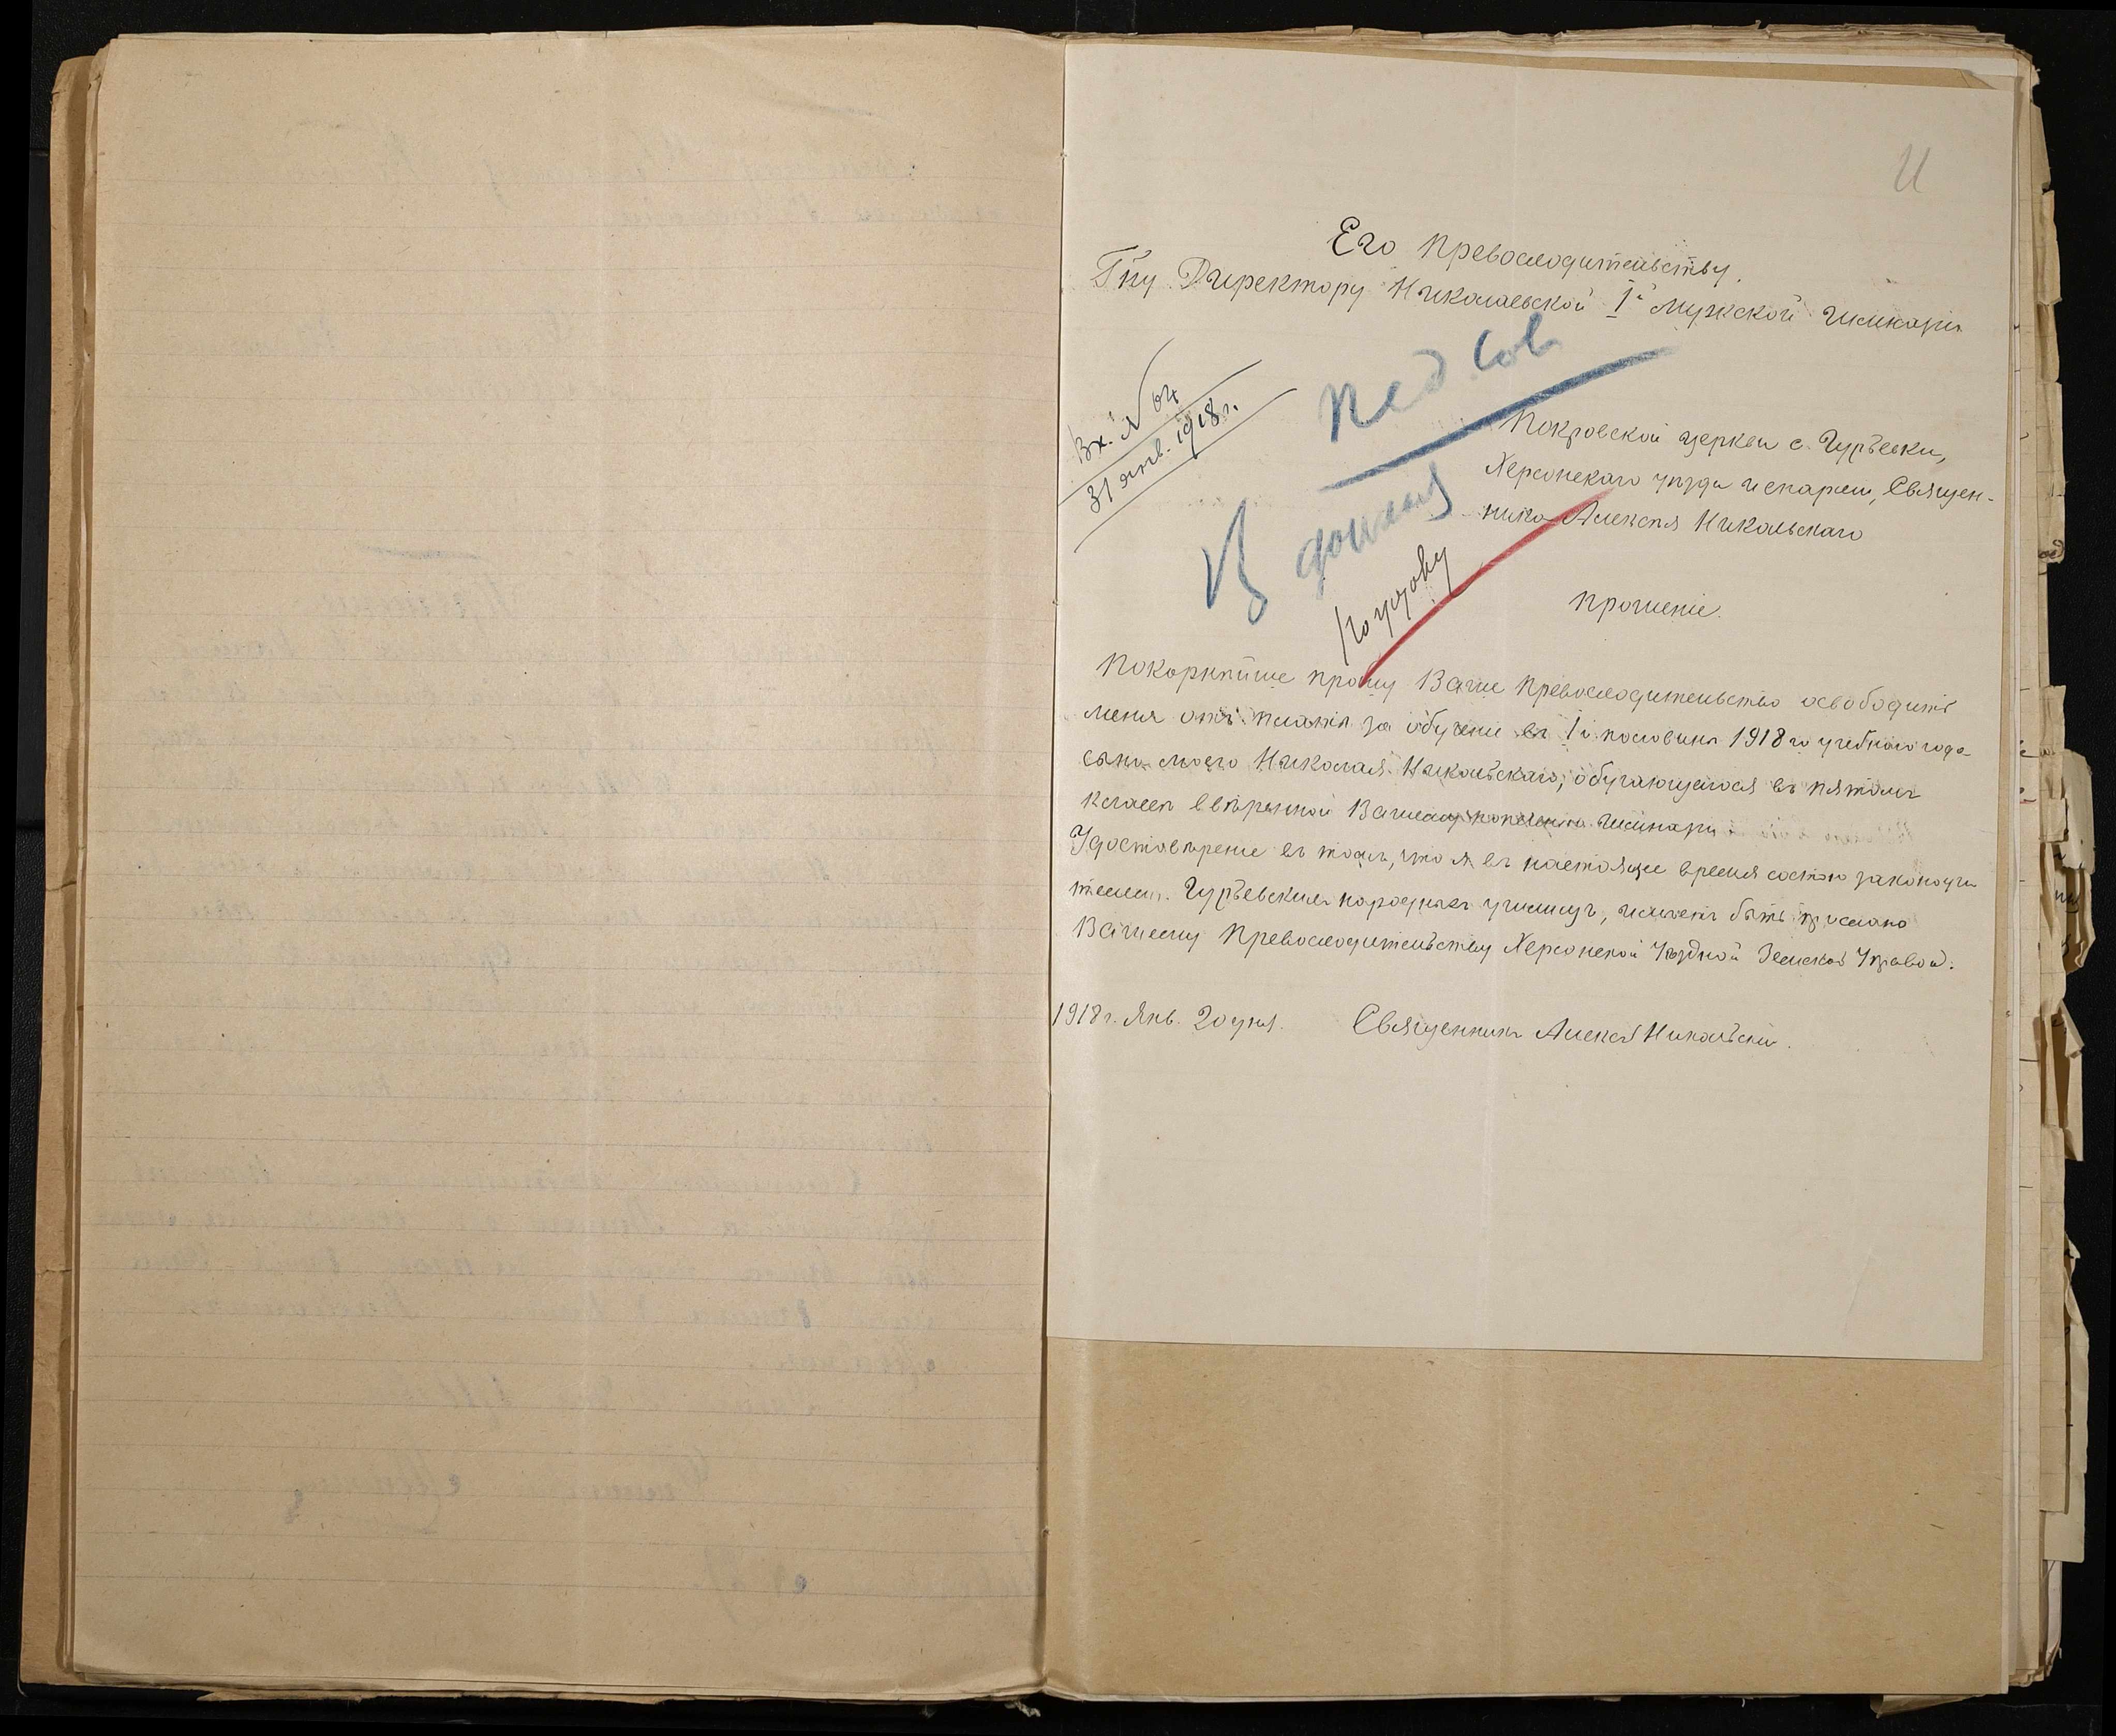 Его Превосходительству.
Г-ну Директору Николаевской 1й мужской гимназіи
Вх. № 64
31 янв. 1918 г.
Пед Сов
Покровской церкви с. Гурьевки,
Херсонскаго уѣзда и епархіи, Священ-
ника Алексѣя Никольскаго
Прошеніе.
Покорнѣйше прошу Ваше Превосходительство освободить
меня отъ платы за обученіе въ 1й половинѣ 1918 го учебнаго года
сына моего Николая Никольскаго, обучающагося въ пятомъ
классѣ ввѣренной Вашему попеченію гимназіи
Удостовѣреніе въ томъ, что я въ настоящее время состою законоучи
телемъ Гурьевскихъ народныхъ училищъ, имѣетъ быть прислано
Вашему Превосходительству Херсонской Уѣздной Земской Управой.
1918 г. Янв. 20 дня. Священникъ Алексѣй Никольскій.